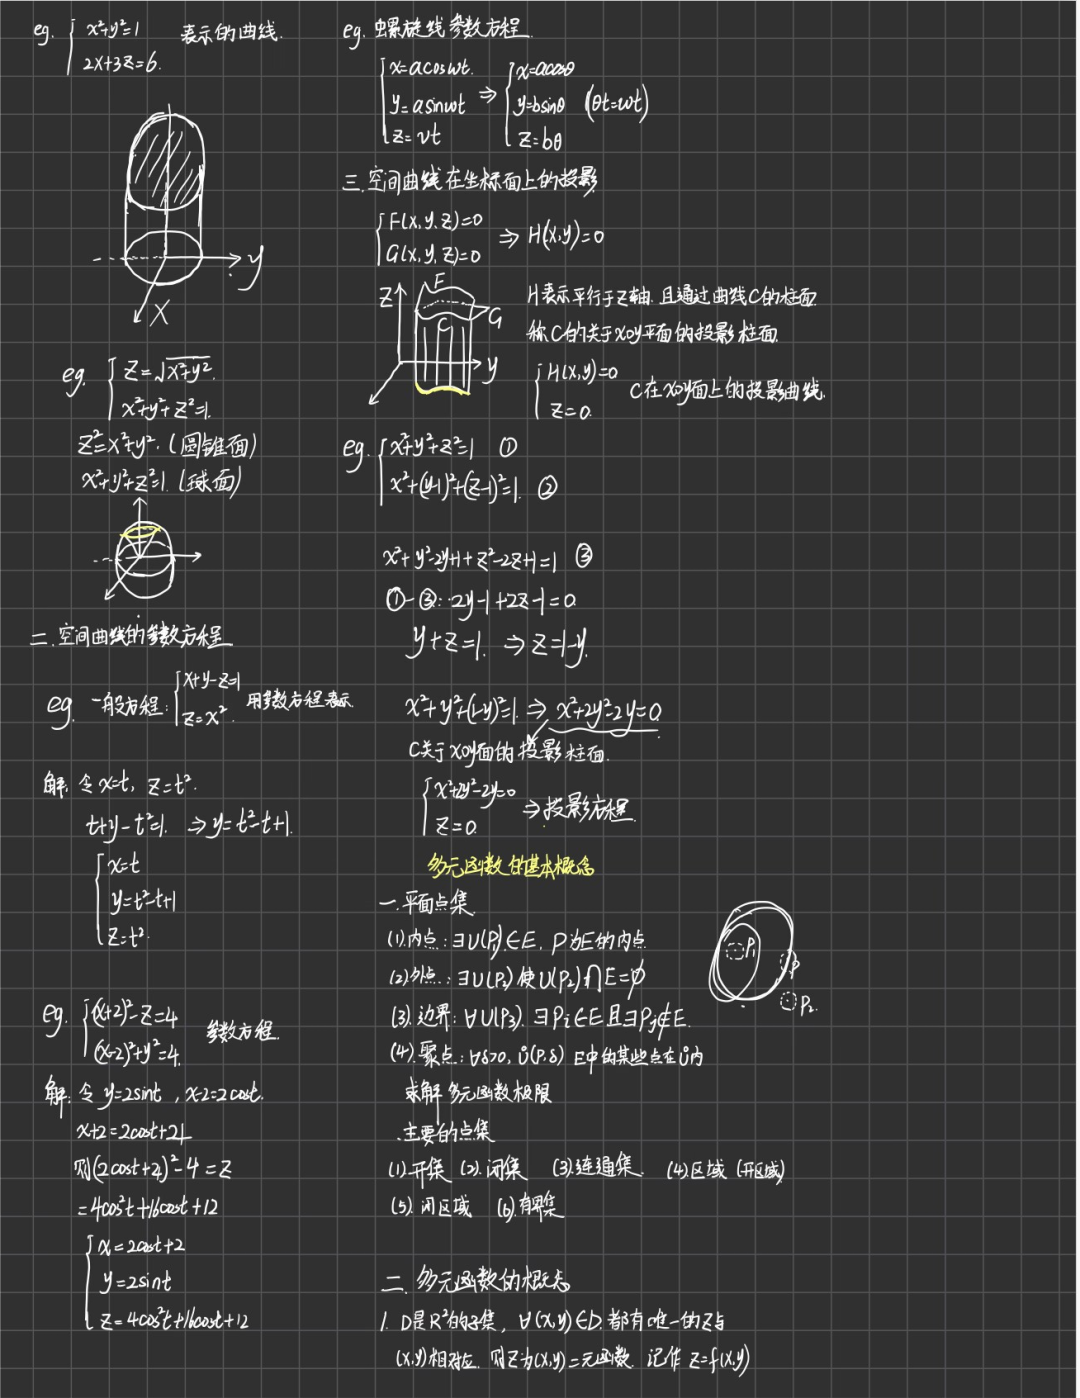 eg. { x²+y²=1 表示的曲线.
2x+3z=6.
y
x
eg. { z=√(x²+y²).
x²+y²+z²=1.
z²=x²+y². (圆锥面)
x²+y²+z²=1. (球面)
二.空间曲线的参数方程
eg. 一般方程: { x+y-z=1 用参数方程表示.
z=x².
解. 令x=t, z=t².
t+y-t²=1. ⇒y=t²-t+1.
{ x=t
y=t²-t+1
z=t².
eg. { (x+2)²-z=4 参数方程.
(x-2)²+y²=4.
解. 令y=2sint, x-2=2cost.
x+2=2cost+4
则(2cost+4)²-4=z
=4cos²t+16cost+12
{ x=2cost+2
y=2sint
z=4cos²t+16cost+12
eg. 螺旋线参数方程.
{ x=acoswt. ⇒ { x=acosθ
y=asinwt y=bsinθ (θt=wt)
z=vt z=bθ
三.空间曲线在坐标面上的投影
{ F(x,y,z)=0 ⇒ H(x,y)=0
G(x,y,z)=0
z F G C y
H表示平行于z轴.且通过曲线C的柱面
称C的关于xoy平面的投影柱面.
{ H(x,y)=0 C在xoy面上的投影曲线.
z=0.
eg. { x²+y²+z²=1 ①
x²+(y-1)²+(z-1)²=1. ②
x²+y²-2y+1+z²-2z+1=1 ③
①-③: 2y-1+2z-1=0
y+z=1. ⇒z=1-y.
x²+y²+(1-y)²=1. ⇒ x²+2y²-2y=0
C关于xoy面的投影柱面.
{ x²+2y²-2y=0 ⇒投影方程.
z=0.
多元函数的基本概念
一.平面点集.
(1).内点: ∃U(P₁)∈E. P为E的内点
(2)外点: ∃U(P₂)使U(P₂)∩E=∅
(3).边界: ∀U(P₃). ∃Pi∈E且∃Pj∉E.
(4).聚点: ∀δ>0, Ů(P.δ) E中的某些点在Ů内
P₁
P
P₂.
求解多元函数极限
.主要的点集
(1).开集 (2).闭集 (3).连通集. (4).区域 (开区域)
(5). 闭区域 (6).有界集
二. 多元函数的概念
1. D是R²的子集, ∀(x,y)∈D.都有唯一的z与
(x,y)相对应. 则z为(x,y)二元函数. 记作 z=f(x,y)